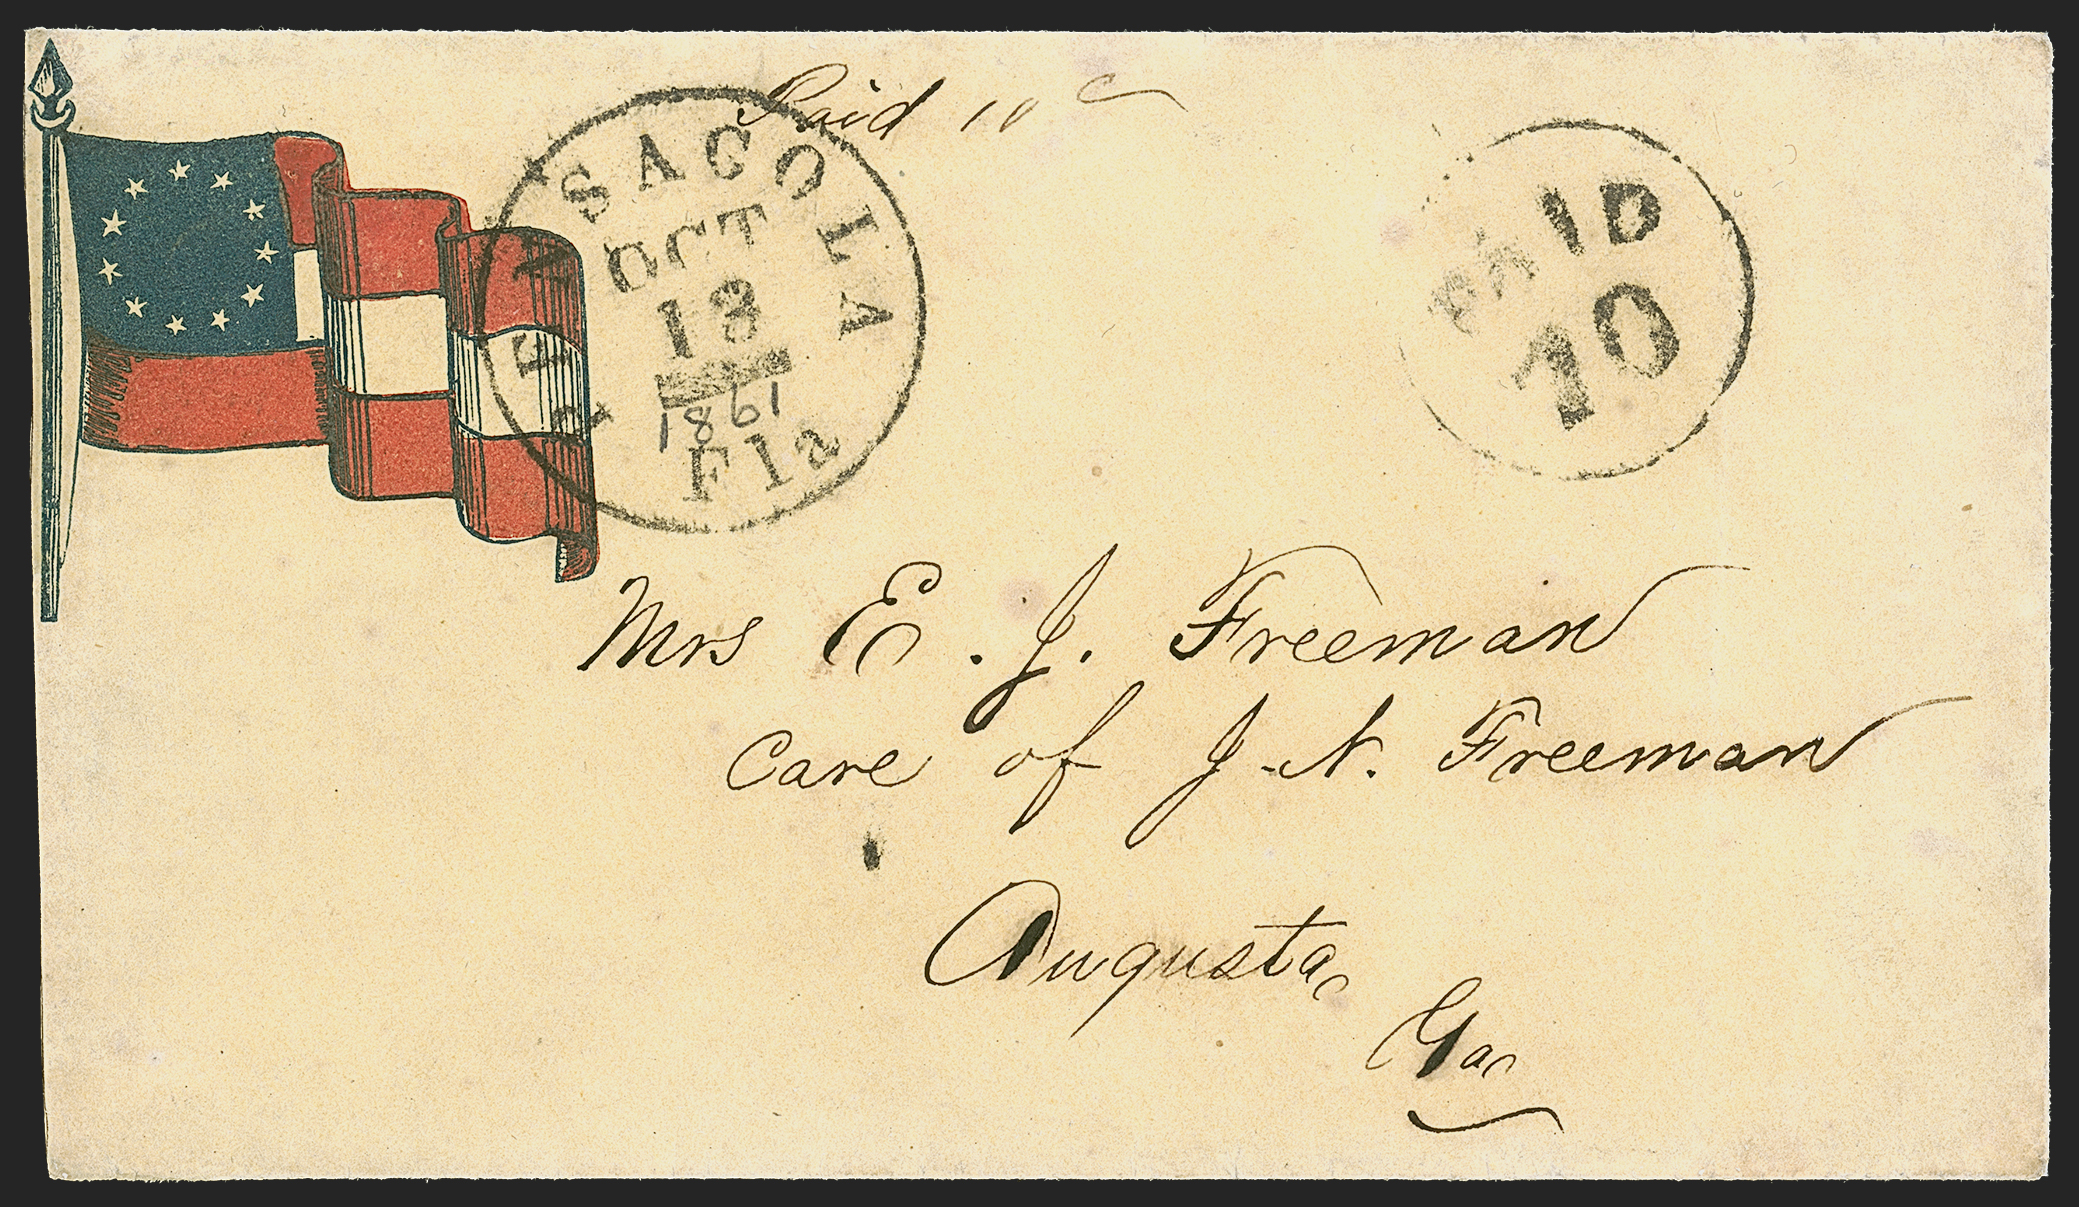 Paid 10 c
PENSACOLA
OCT
18
1861
Fla
PAID
10
Mrs E. J. Freeman
Care of J. N. Freeman
Augusta,
Ga